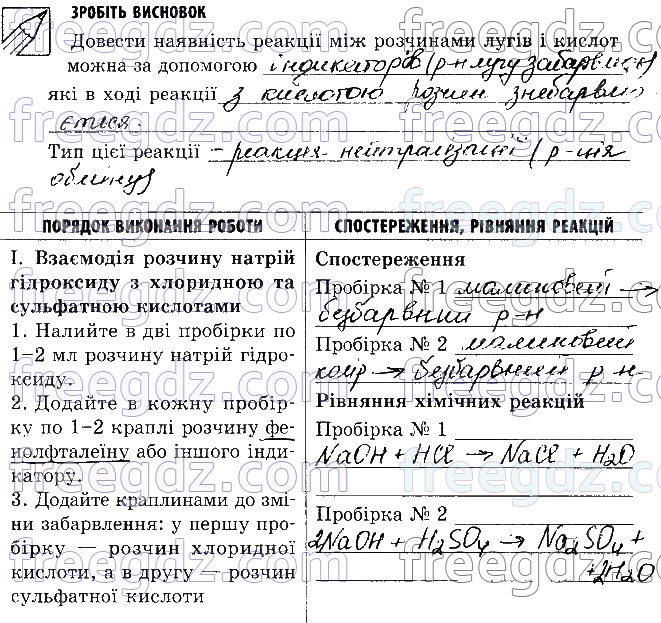 ЗРОБІТЬ ВИСНОВОК
Довести наявність реакції між розчинами лугів і кислот
можна за допомогою індикаторів (р-н лугу забарвлен)
які в ході реакції з кислотою розчин знебарвлю
ється.
Тип цієї реакції – реакція нейтралізації (р-ція
обміну)
ПОРЯДОК ВИКОНАННЯ РОБОТИ
І. Взаємодія розчину натрій
гідроксиду з хлоридною та
сульфатною кислотами
1. Налийте в дві пробірки по
1–2 мл розчину натрій гідро-
ксиду.
2. Додайте в кожну пробір-
ку по 1–2 краплі розчину фе-
нолфталеїну або іншого інди-
катору.
3. Додайте краплинами до змі-
ни забарвлення: у першу про-
бірку — розчин хлоридної
кислоти, а в другу — розчин
сульфатної кислоти
СПОСТЕРЕЖЕННЯ, РІВНЯННЯ РЕАКЦІЙ
Спостереження
Пробірка № 1 малиновий →
безбарвний р-н
Пробірка № 2 малиновий
колір → безбарвний р-н
Рівняння хімічних реакцій
Пробірка № 1
NaOH + HCl → NaCl + H₂O
Пробірка № 2
2NaOH + H₂SO₄ → Na₂SO₄ +
+2H₂O
freegdz.com